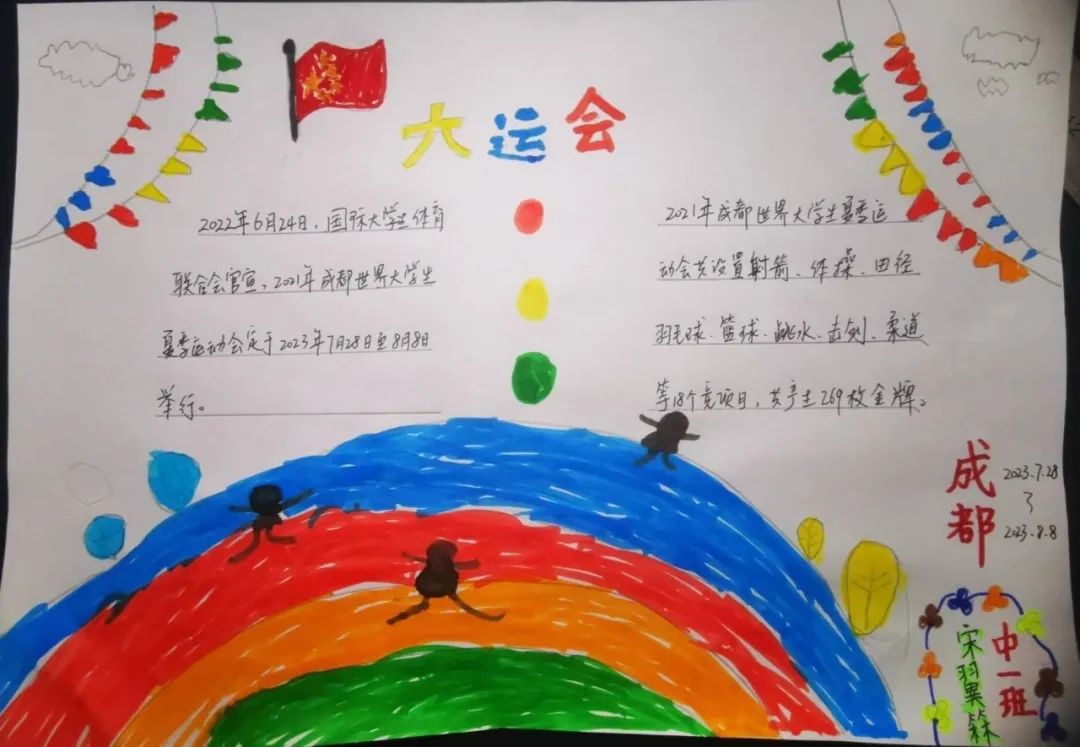 大运会
2022年6月24日，国际大学生体育
联合会官宣，2021年成都世界大学生
夏季运动会定于2023年7月28日至8月8日
举行。
2021年成都世界大学生夏季运
动会共设置射箭、体操、田径
羽毛球、篮球、跳水、击剑、柔道
等18个竞项目，共产生269枚金牌。
成都
2023.7.28
~
2023.8.8
中一班
宋羽果箖